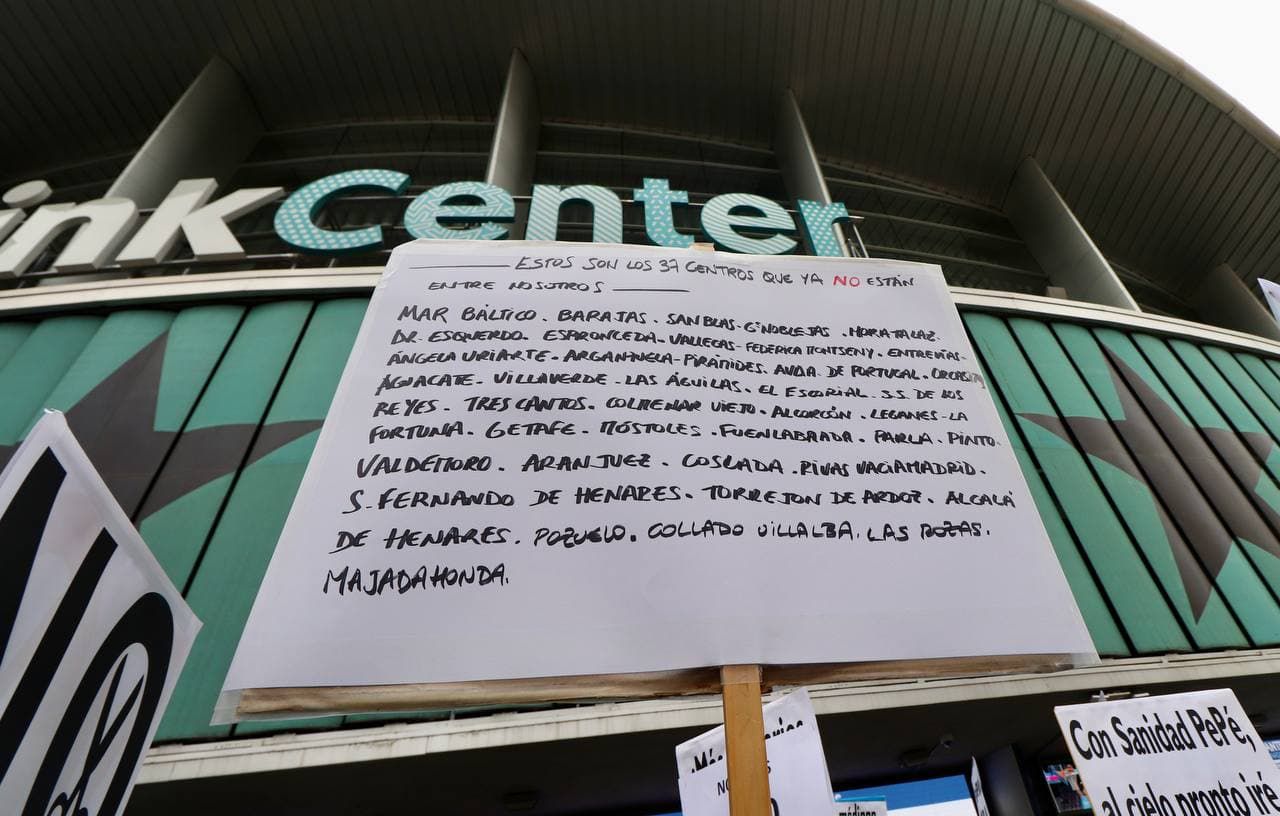 ink Center
ESTOS SON LOS 37 CENTROS QUE YA NO ESTÁN
ENTRE NOSOTROS
MAR BÁLTICO. BARAJAS. SAN BLAS-G.NOBLEJAS. MORATALAZ.
DR. ESQUERDO. ESPRONCEDA. VALLECAS-FEDERICA MONTSENY. ENTREVÍAS-
ÁNGELA URIARTE. ARGANZUELA-PIRÁMIDES. AVDA. DE PORTUGAL. ORCASITAS
AGUACATE. VILLAVERDE. LAS ÁGUILAS. EL ESCORIAL. S.S. DE LOS
REYES. TRES CANTOS. COLMENAR VIEJO. ALCORCÓN. LEGANES-LA
FORTUNA. GETAFE. MÓSTOLES. FUENLABRADA. PARLA. PINTO.
VALDEMORO. ARANJUEZ. COSLADA. RIVAS VACIAMADRID.
S. FERNANDO DE HENARES. TORREJON DE ARDOZ. ALCALÁ
DE HENARES. POZUELO. COLLADO VILLALBA. LAS ROZAS.
MAJADAHONDA.
Con Sanidad PePé,
al cielo pronto iré
médicos